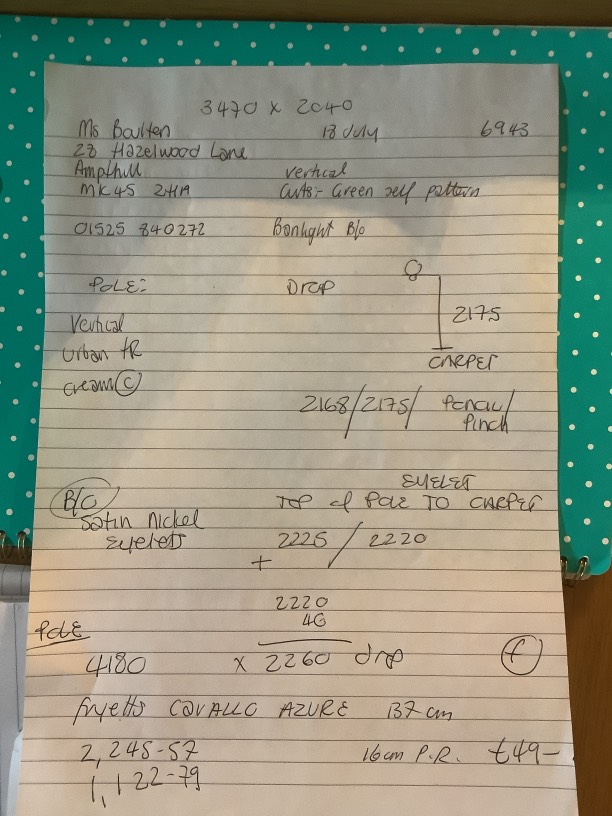 3470 x 2040
Ms Boulten 18 July 6943
28 Hazelwood Lane
Ampthill vertical
MK45 2HA Cuts:- Green self pattern
01525 840272 Bonlight B/o
POLE: DROP
2175
Vertical
Urban
CARPET
cream (C)
2168/2175/ Pencil/
Pinch
EYELET
B/O TOP of POLE TO CARPET
Satin Nickel
Eyelets 2225 / 2220
+
2220
40
POLE
4180 x 2260 drop (f)
fryetts CAVALLO AZURE 137cm
2,245-57 16cm P.R. £49-
1,122-79